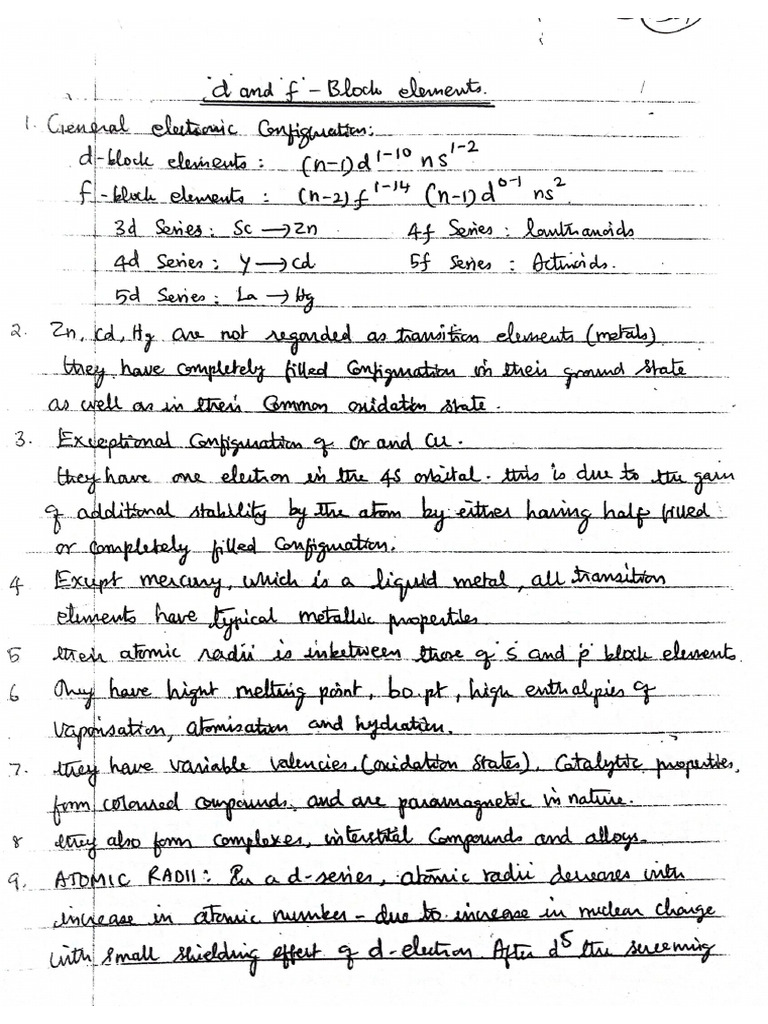 'd' and 'f' - Block elements.
1. General electronic Configuration:
d-block elements : (n-1)d¹⁻¹⁰ ns¹⁻²
f-block elements : (n-2)f¹⁻¹⁴ (n-1)d⁰⁻¹ ns².
3d Series : Sc → Zn 4f Series : Lanthanoids
4d Series : Y → Cd 5f Series : Actinoids.
5d Series : La → Hg
2. Zn, Cd, Hg are not regarded as transition elements (metals)
they have completely filled Configuration in their ground state
as well as in their Common oxidation state.
3. Exceptional Configuration of Cr and Cu.
they have one electron in the 4s orbital. this is due to the gain
of additional stability by the atom by either having half filled
or completely filled Configuration.
4 Except mercury, which is a liquid metal, all transition
elements have typical metallic properties
5 their atomic radii is inbetween those of 's' and 'p' block elements
6 They have hight melting point, bo.pt, high enthalpies of
vaporisation, atomisation and hydration.
7. they have variable valencies, (oxidation states), Catalytic properties,
form coloured compounds, and are paramagnetic in nature.
8 they also form complexes, interstitial Compounds and alloys.
9. ATOMIC RADII : In a d-series, atomic radii decreases with
increase in atomic number - due to increase in nuclear charge
with small shielding effect of d-electron After d⁵ the screening